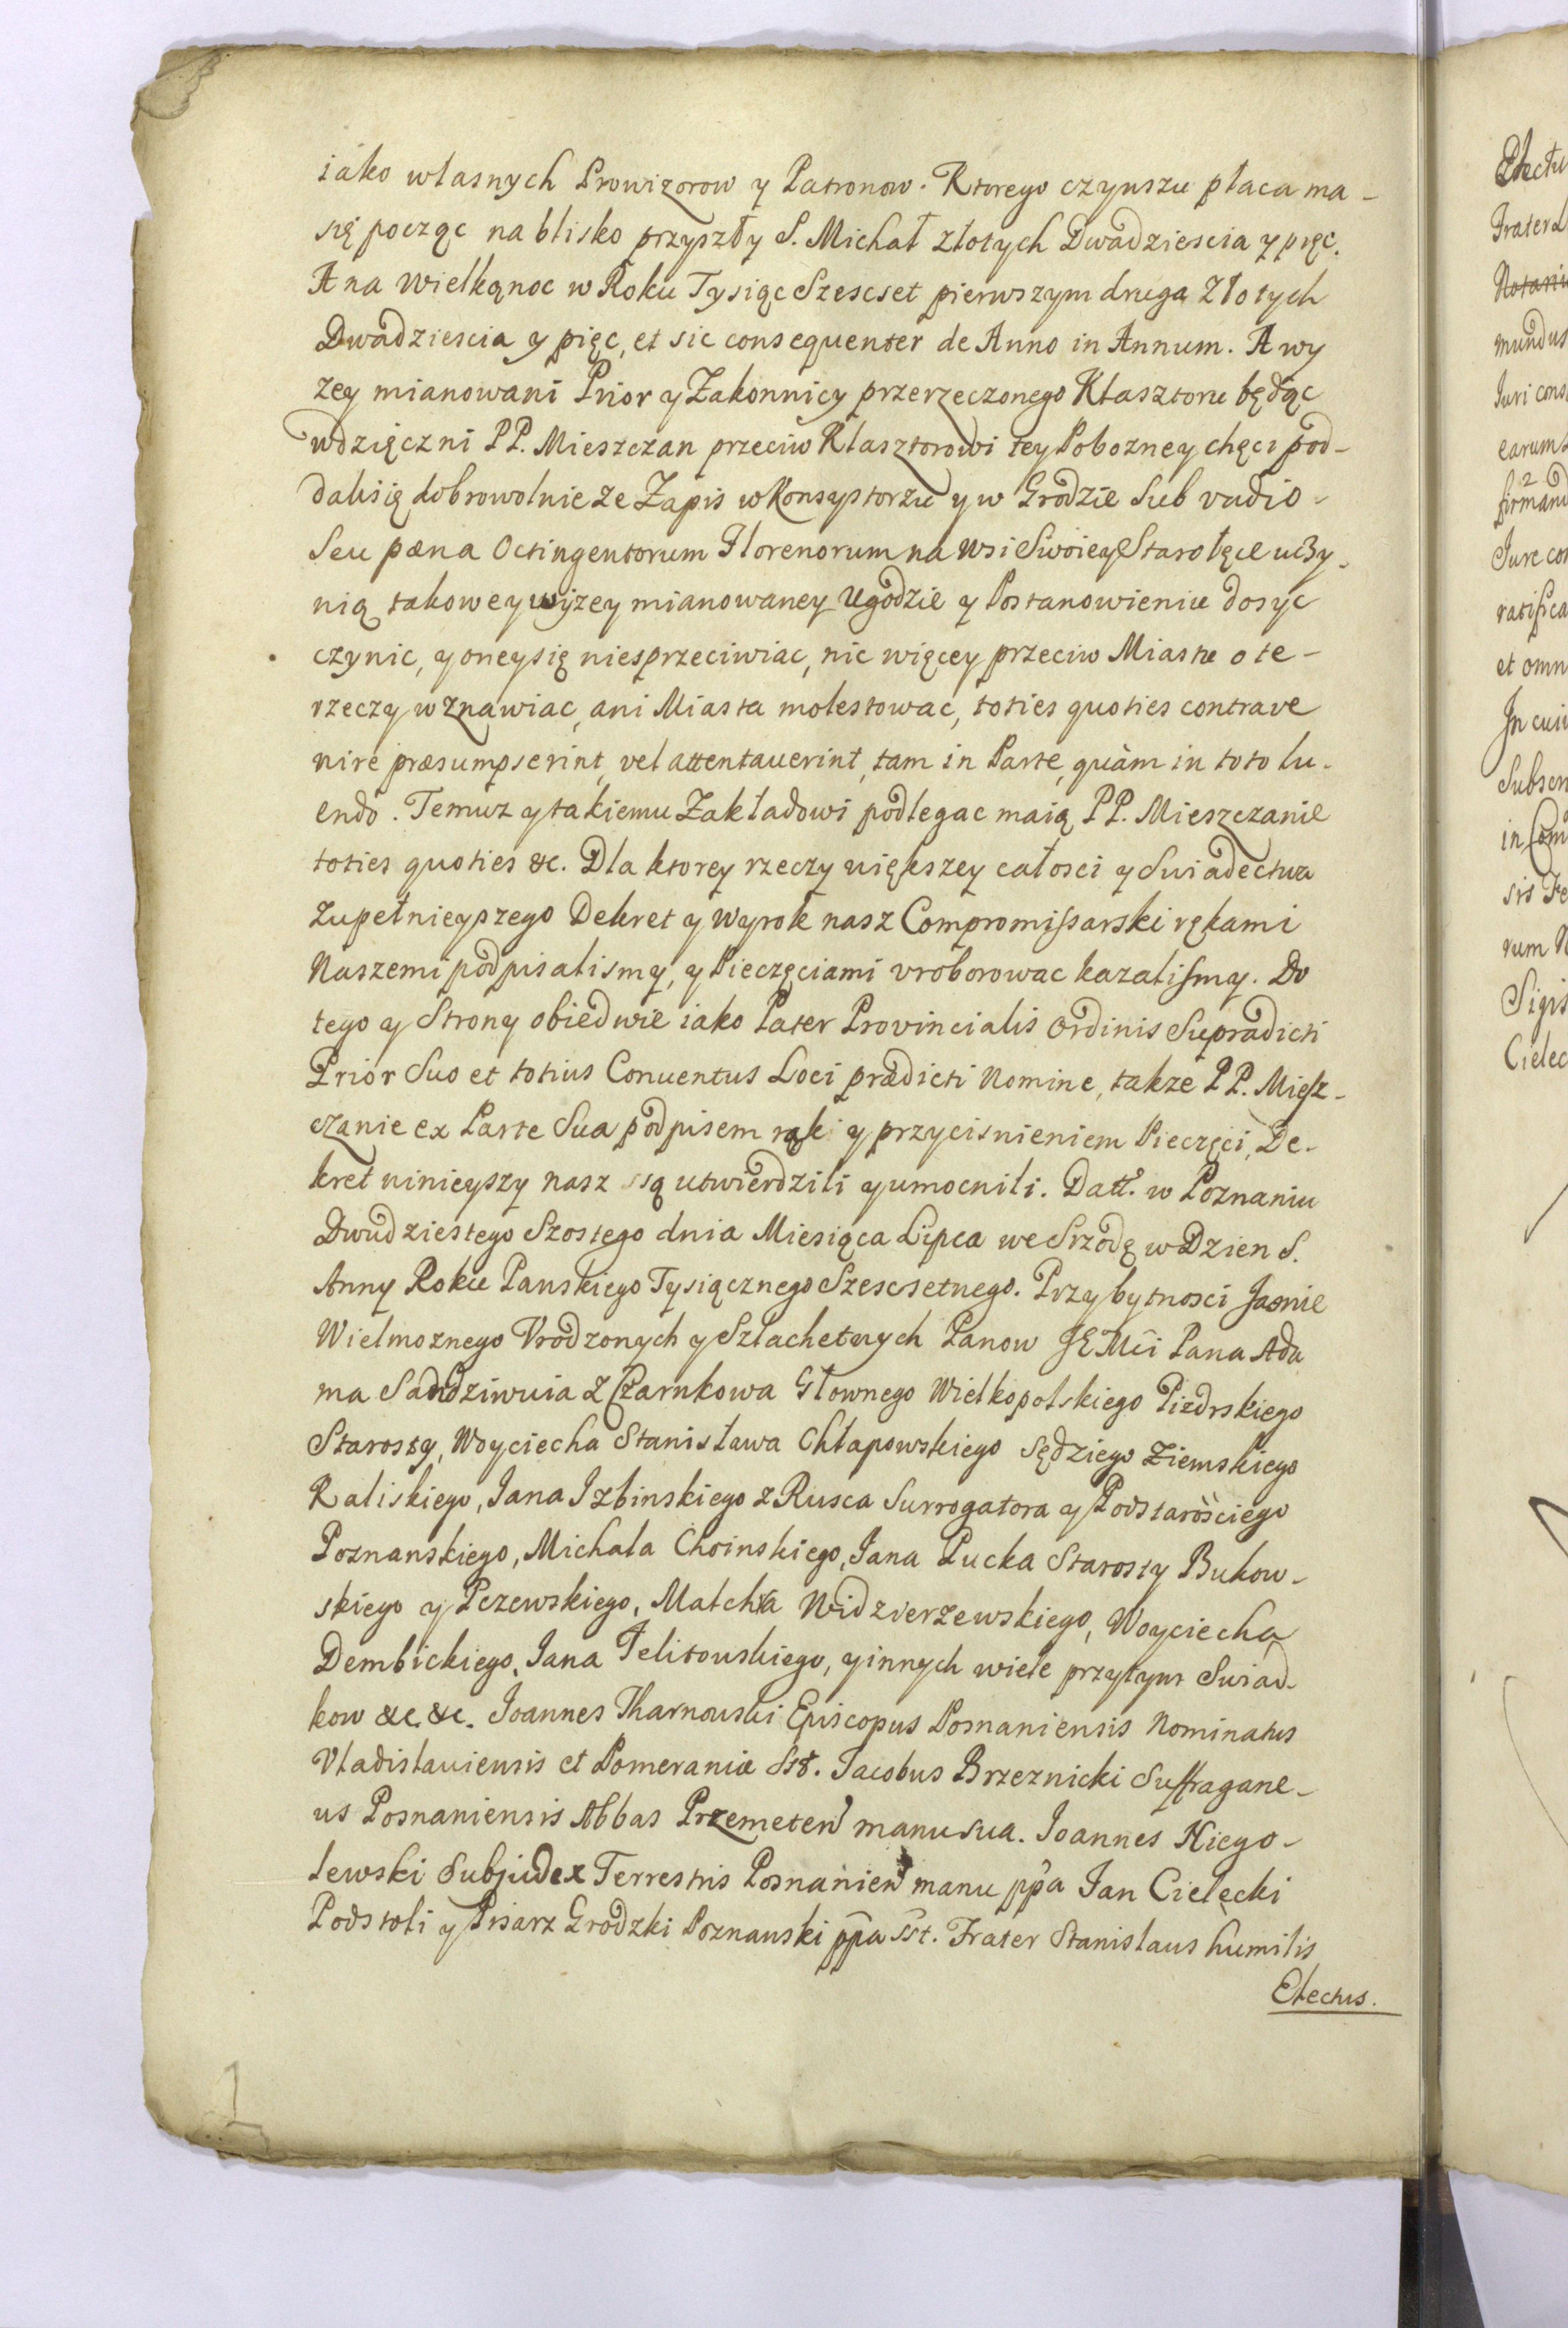 iako własnych Prowizorow y Patronow. Ktorego czynszu płaca ma-
się począc na blisko przyszły S. Michał złotych Dwadziescia y pięc.
A na Wielkąnoc w Roku Tysiąc Szescset pierwszym druga Złotych
Dwadziescia y pięc, et sic consequenter de Anno in Annum. A wy
zey mianowani Prior y Zakonnicy przerzeczonego Klasztoru będąc
wdzięczni PP. Mieszczan przeciw Klasztorowi tey Pobozney chęci pod-
dali się dobrowolnie ze Zapis w Konsystorzu y w Grodzie sub vadio-
seu pæna Octingentorum Florenorum na wsi Swoiey Starołęce uczy-
nią takowey wyzey mianowaney Ugodzie y Postanowieniu dosyc
czynic, y oney się niesprzeciwiac, nic więcey przeciw Miastu o te-
rzeczy wznawiac, ani Miasta molestowac, toties quoties contrave
nire præsumpserint, vel attentauerint, tam in Parte, quàm in toto lu-
endo. Temuz y takiemu Zakładowi podlegac maią PP. Mieszczanie
toties quoties &c. Dla ktorey rzeczy większey całosci y Swiadectwa
zupełnieyszego Dekret y wyrok nasz Compromissarski rękami
Naszemi podpisalismy, y Pieczęciami vroborowac kazalismy. Do
tego y Strony obiedwie iako Pater Provincialis Ordinis Supradicti
Prior Suo et totius Conuentus Loci prædicti Nomine, takze PP. Miesz-
czanie ex Parte Sua podpisem rąk y przycisnieniem Pieczęci, De-
kret ninieyszy nasz są utwierdzili y umocnili. Datt. w Poznaniu
Dwudziestego Szostego dnia Miesiąca Lipca we Srzodę w Dzien S.
Anny Roku Panskiego Tysiącznego Szescsetnego. Przy bytnosci Jasnie
Wielmoznego Vrodzonych y Szlachetnych Panow JE Mci Pana Ada
ma Sandziwuia z Czarnkowa Głownego Wielkopolskiego Pizdrskiego
Starosty, Woyciecha Stanisława Chłapowskiego Sędziego Ziemskiego
Kaliskiego, Jana Izbinskiego z Rusca Surrogatora y Podstarościego
Poznanskiego, Michala Choinskiego, Jana Pucka Starosty Bukow-
skiego y Pczewskiego, Malchra Widzierzewskiego, Woyciecha
Dembickiego, Jana Jelitowskiego, y innych wiele przytym Swiad-
kow &c. &c. Joannes Tharnouski Episcopus Posnaniensis Nominatus
Vladislauiensis et Pomeraniæ sst. Jacobus Brzeznicki Suffragane-
us Posnaniensis Abbas Przemeten manu sua. Joannes Niego-
lewski Subjudex Terrestris Posnanien manu ppa Jan Cielęcki
Podstoli y Pisarz Grodzki Poznanski ppa sst. Frater Stanislaus humilis
Electus.